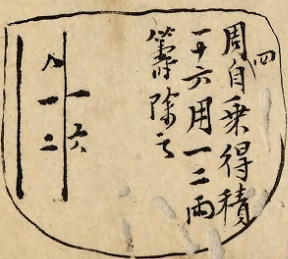 四
周自乗得積
一十六用一二兩
籌除之
一六
八一二